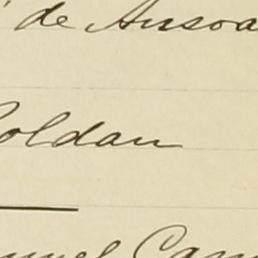 de Ansoa
Roldan
nuel Cam